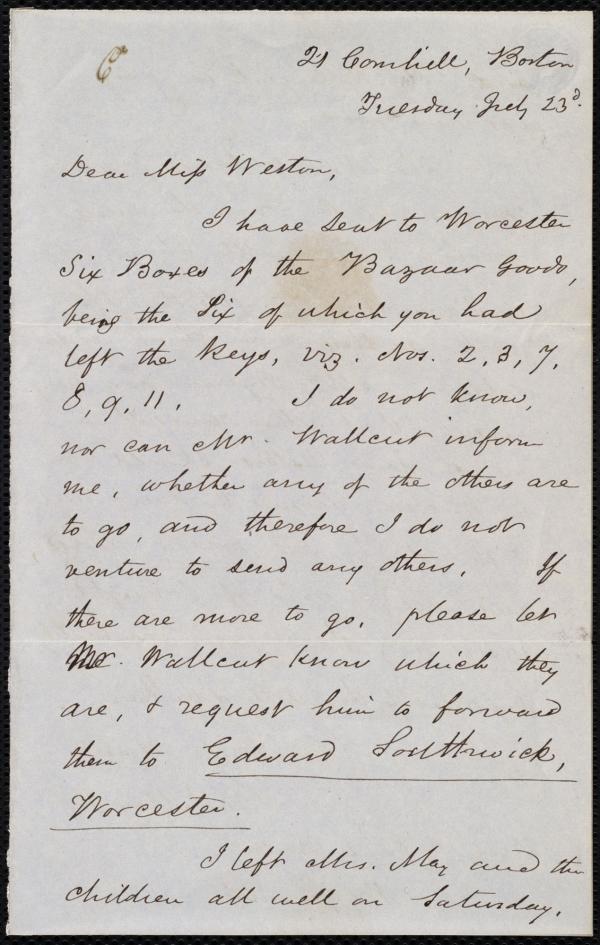 21 Cornhill, Boston
Tuesday July 23d.
Dear Miss Weston,
I have sent to Worcester
Six Boxes of the Bazaar Goods,
being the Six of which you had
left the keys, viz. Nos. 2, 3, 7,
8, 9, 11. I do not know,
nor can Mr. Wallcut inform
me, whether any of the others are
to go, and therefore I do not
venture to send any others. If
there are more to go, please let
Mr. Wallcut know which they
are, & request him to forward
them to Edward Southwick,
Worcester.
I left Mrs. May and the
children all well on Saturday.